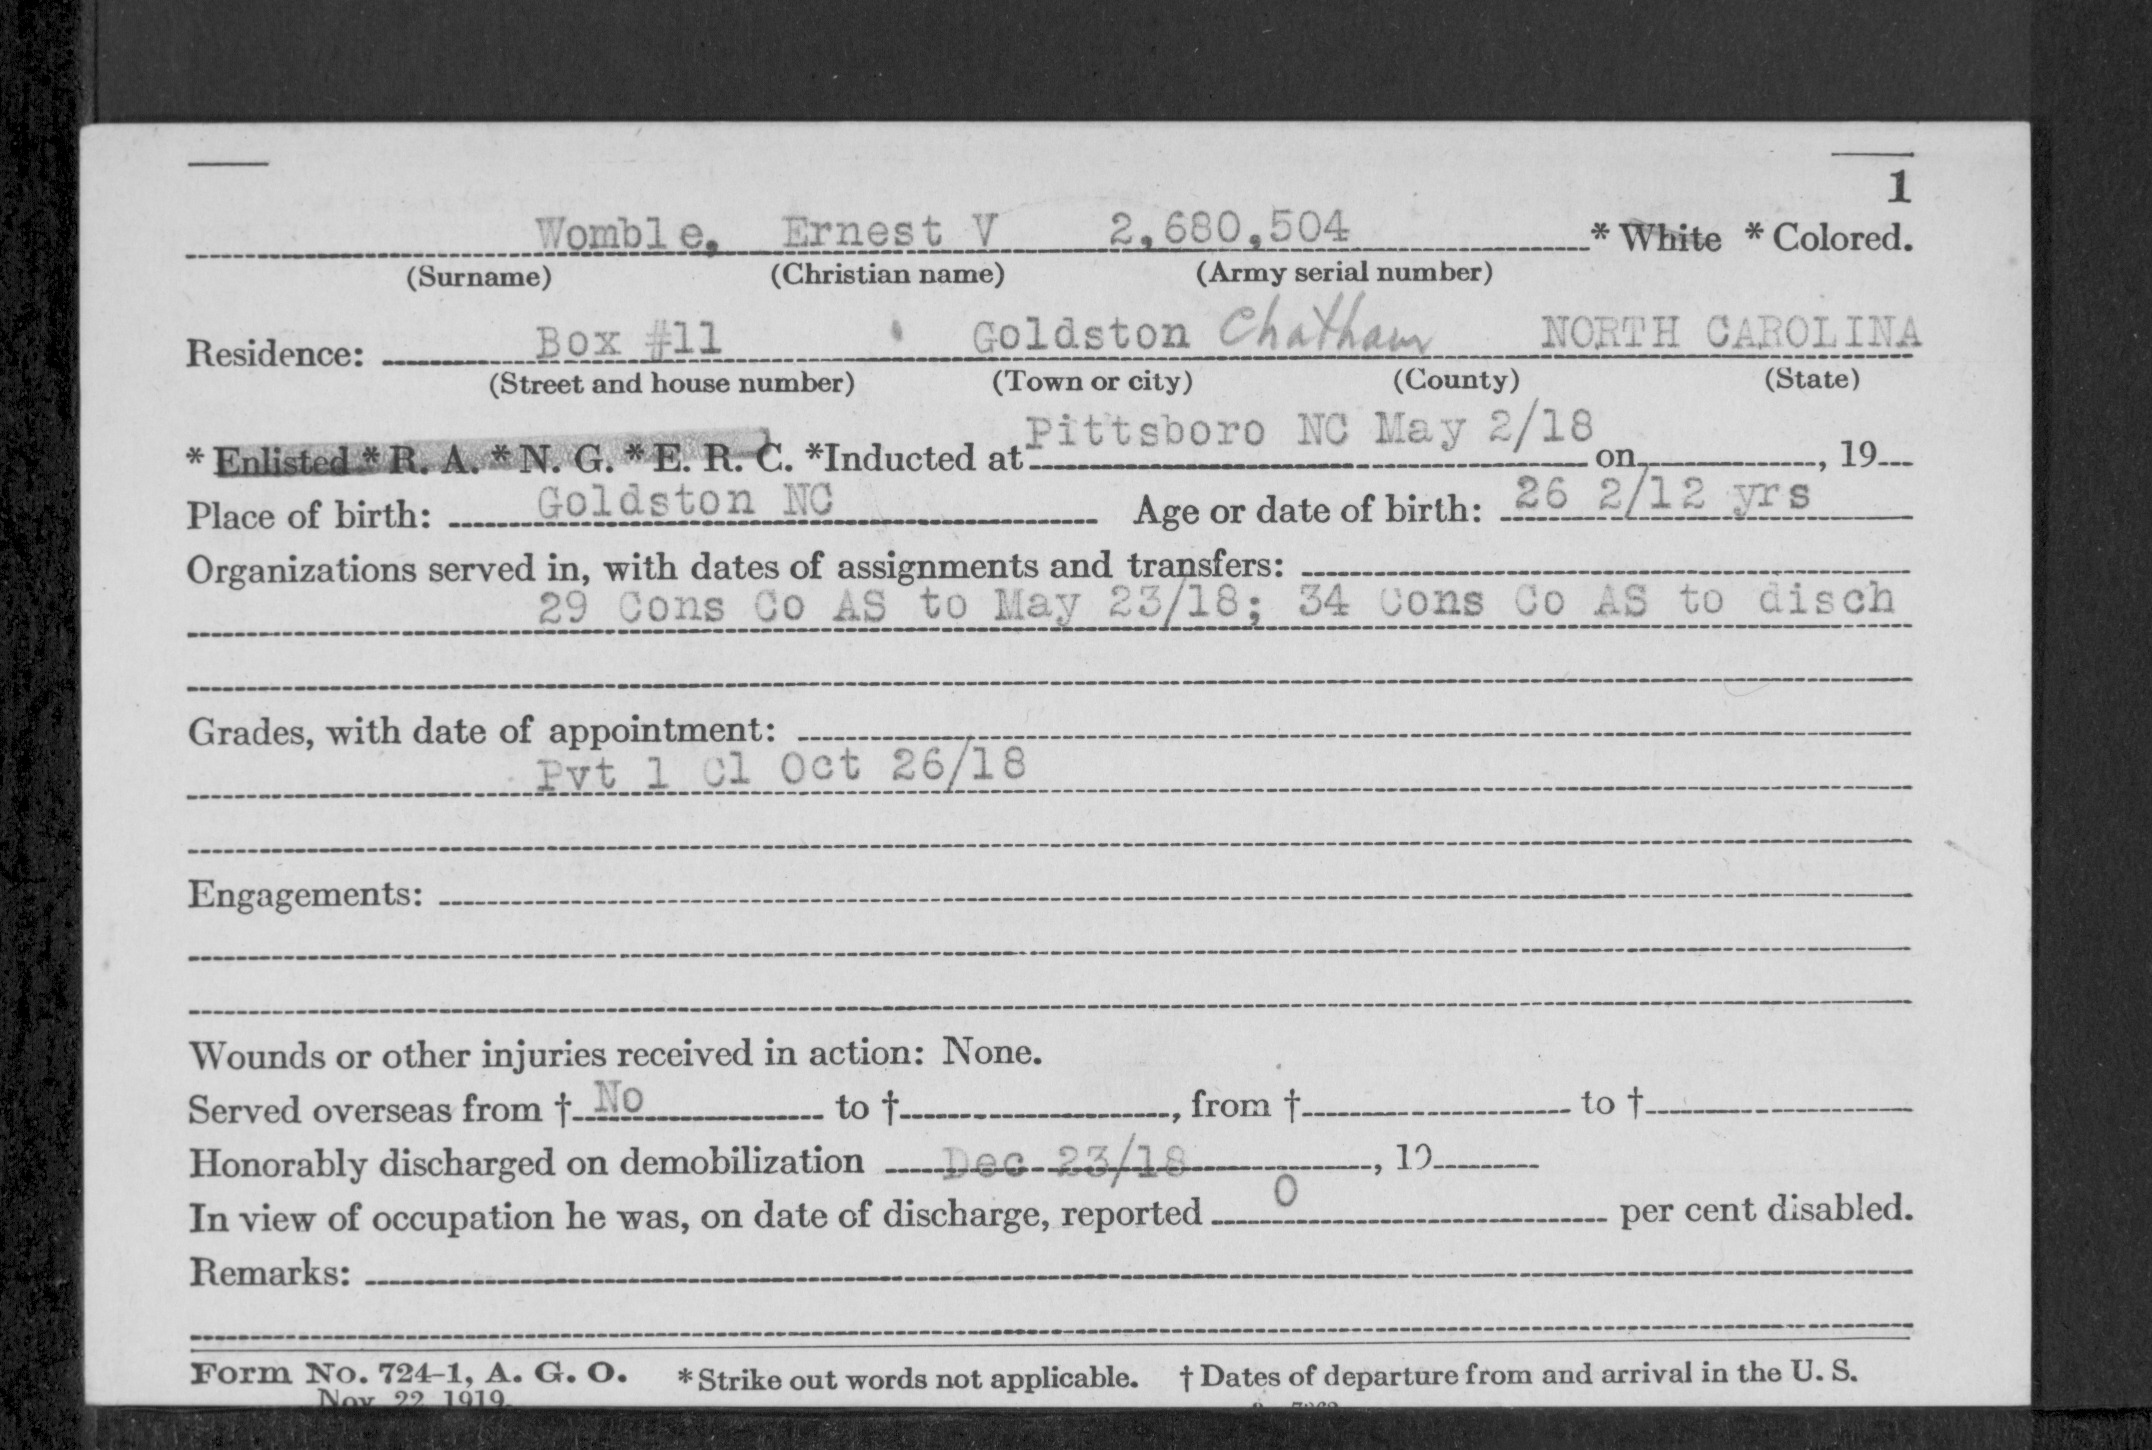 1
Womble, Ernest V 2,680,504 * White * Colored.
(Surname) (Christian name) (Army serial number)
Residence: Box #11 Goldston Chatham NORTH CAROLINA
(Street and house number) (Town or city) (County) (State)
* Enlisted * R. A. * N. G. * E. R. C. *Inducted at Pittsboro NC May 2/18 on , 19
Place of birth: Goldston NC Age or date of birth: 26 2/12 yrs
Organizations served in, with dates of assignments and transfers:
29 Cons Co AS to May 23/18; 34 Cons Co AS to disch
Grades, with date of appointment:
Pvt 1 Cl Oct 26/18
Engagements:
Wounds or other injuries received in action: None.
Served overseas from † No to † , from † to †
Honorably discharged on demobilization Dec 23/18 , 19
In view of occupation he was, on date of discharge, reported 0 per cent disabled.
Remarks:
Form No. 724-1, A. G. O. * Strike out words not applicable. † Dates of departure from and arrival in the U. S.
Nov. 22, 1919.